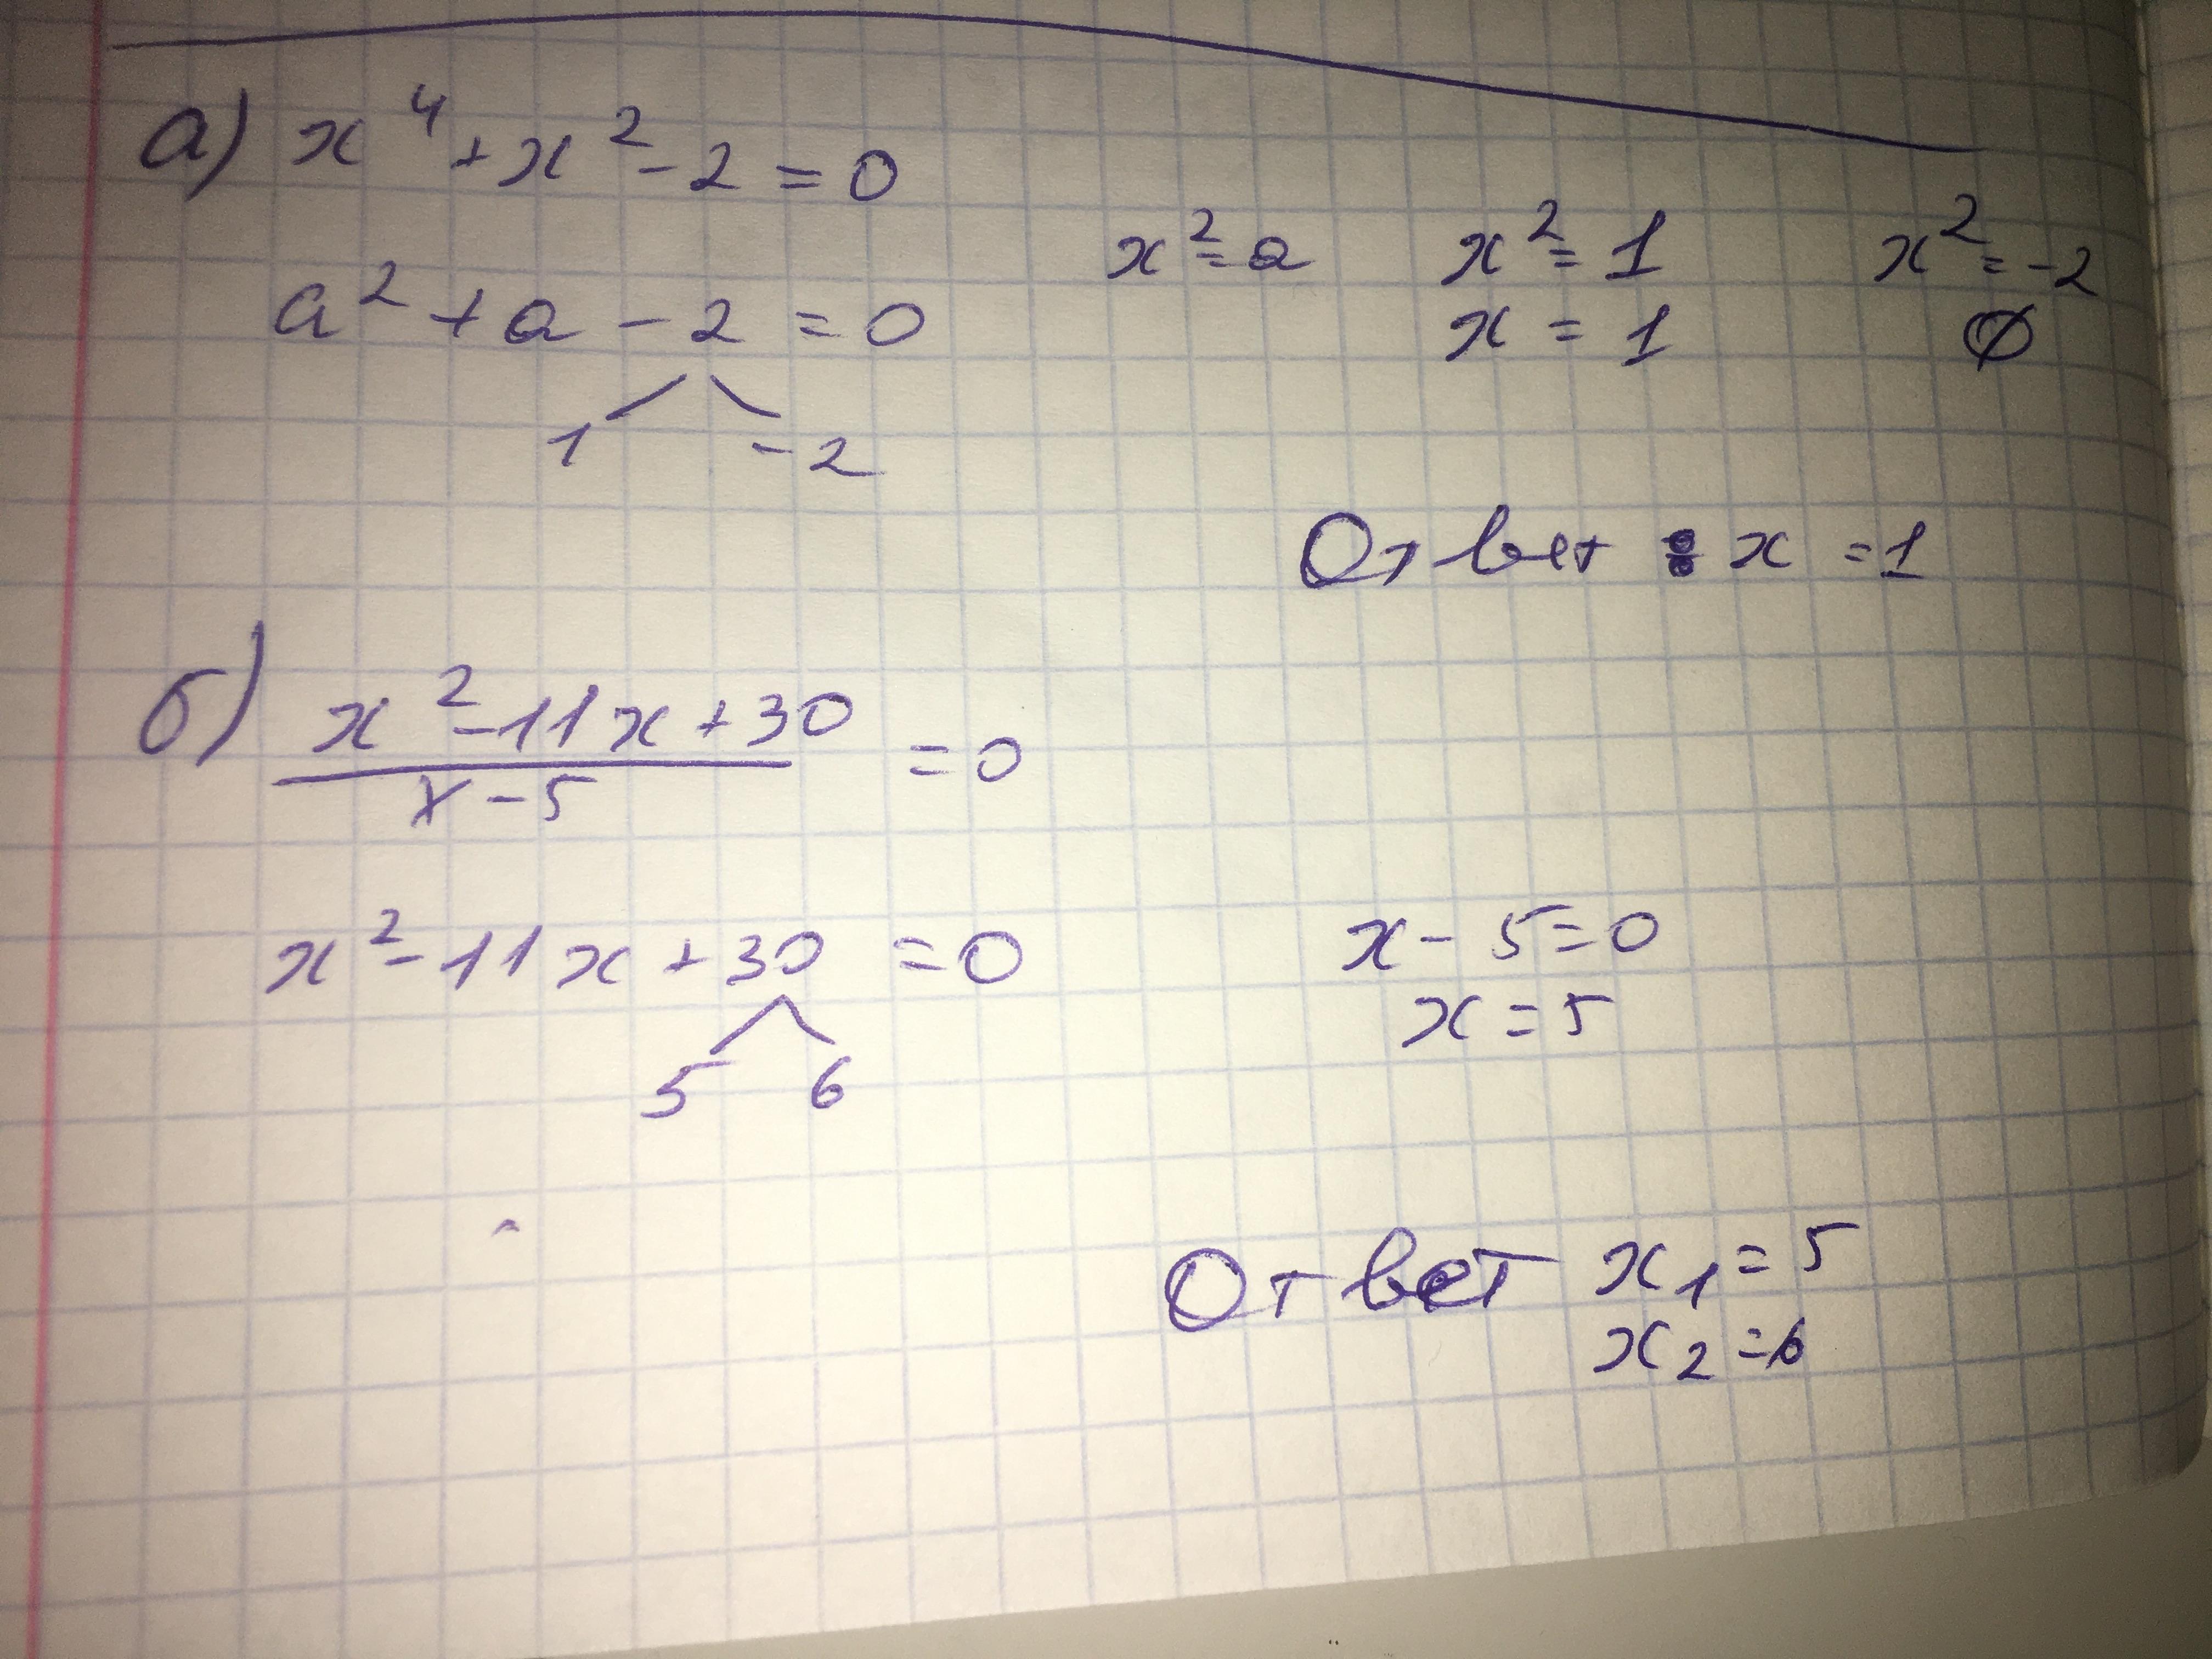 а) x⁴ + x² - 2 = 0
a² + a - 2 = 0
x² = a
x² = 1
x² = -2
x = 1
∅
1 -2
Ответ : x = 1
б) x² - 11x + 30
x - 5
= 0
x² - 11x + 30 = 0
x - 5 = 0
x = 5
5 6
Ответ x₁ = 5
x₂ = 6